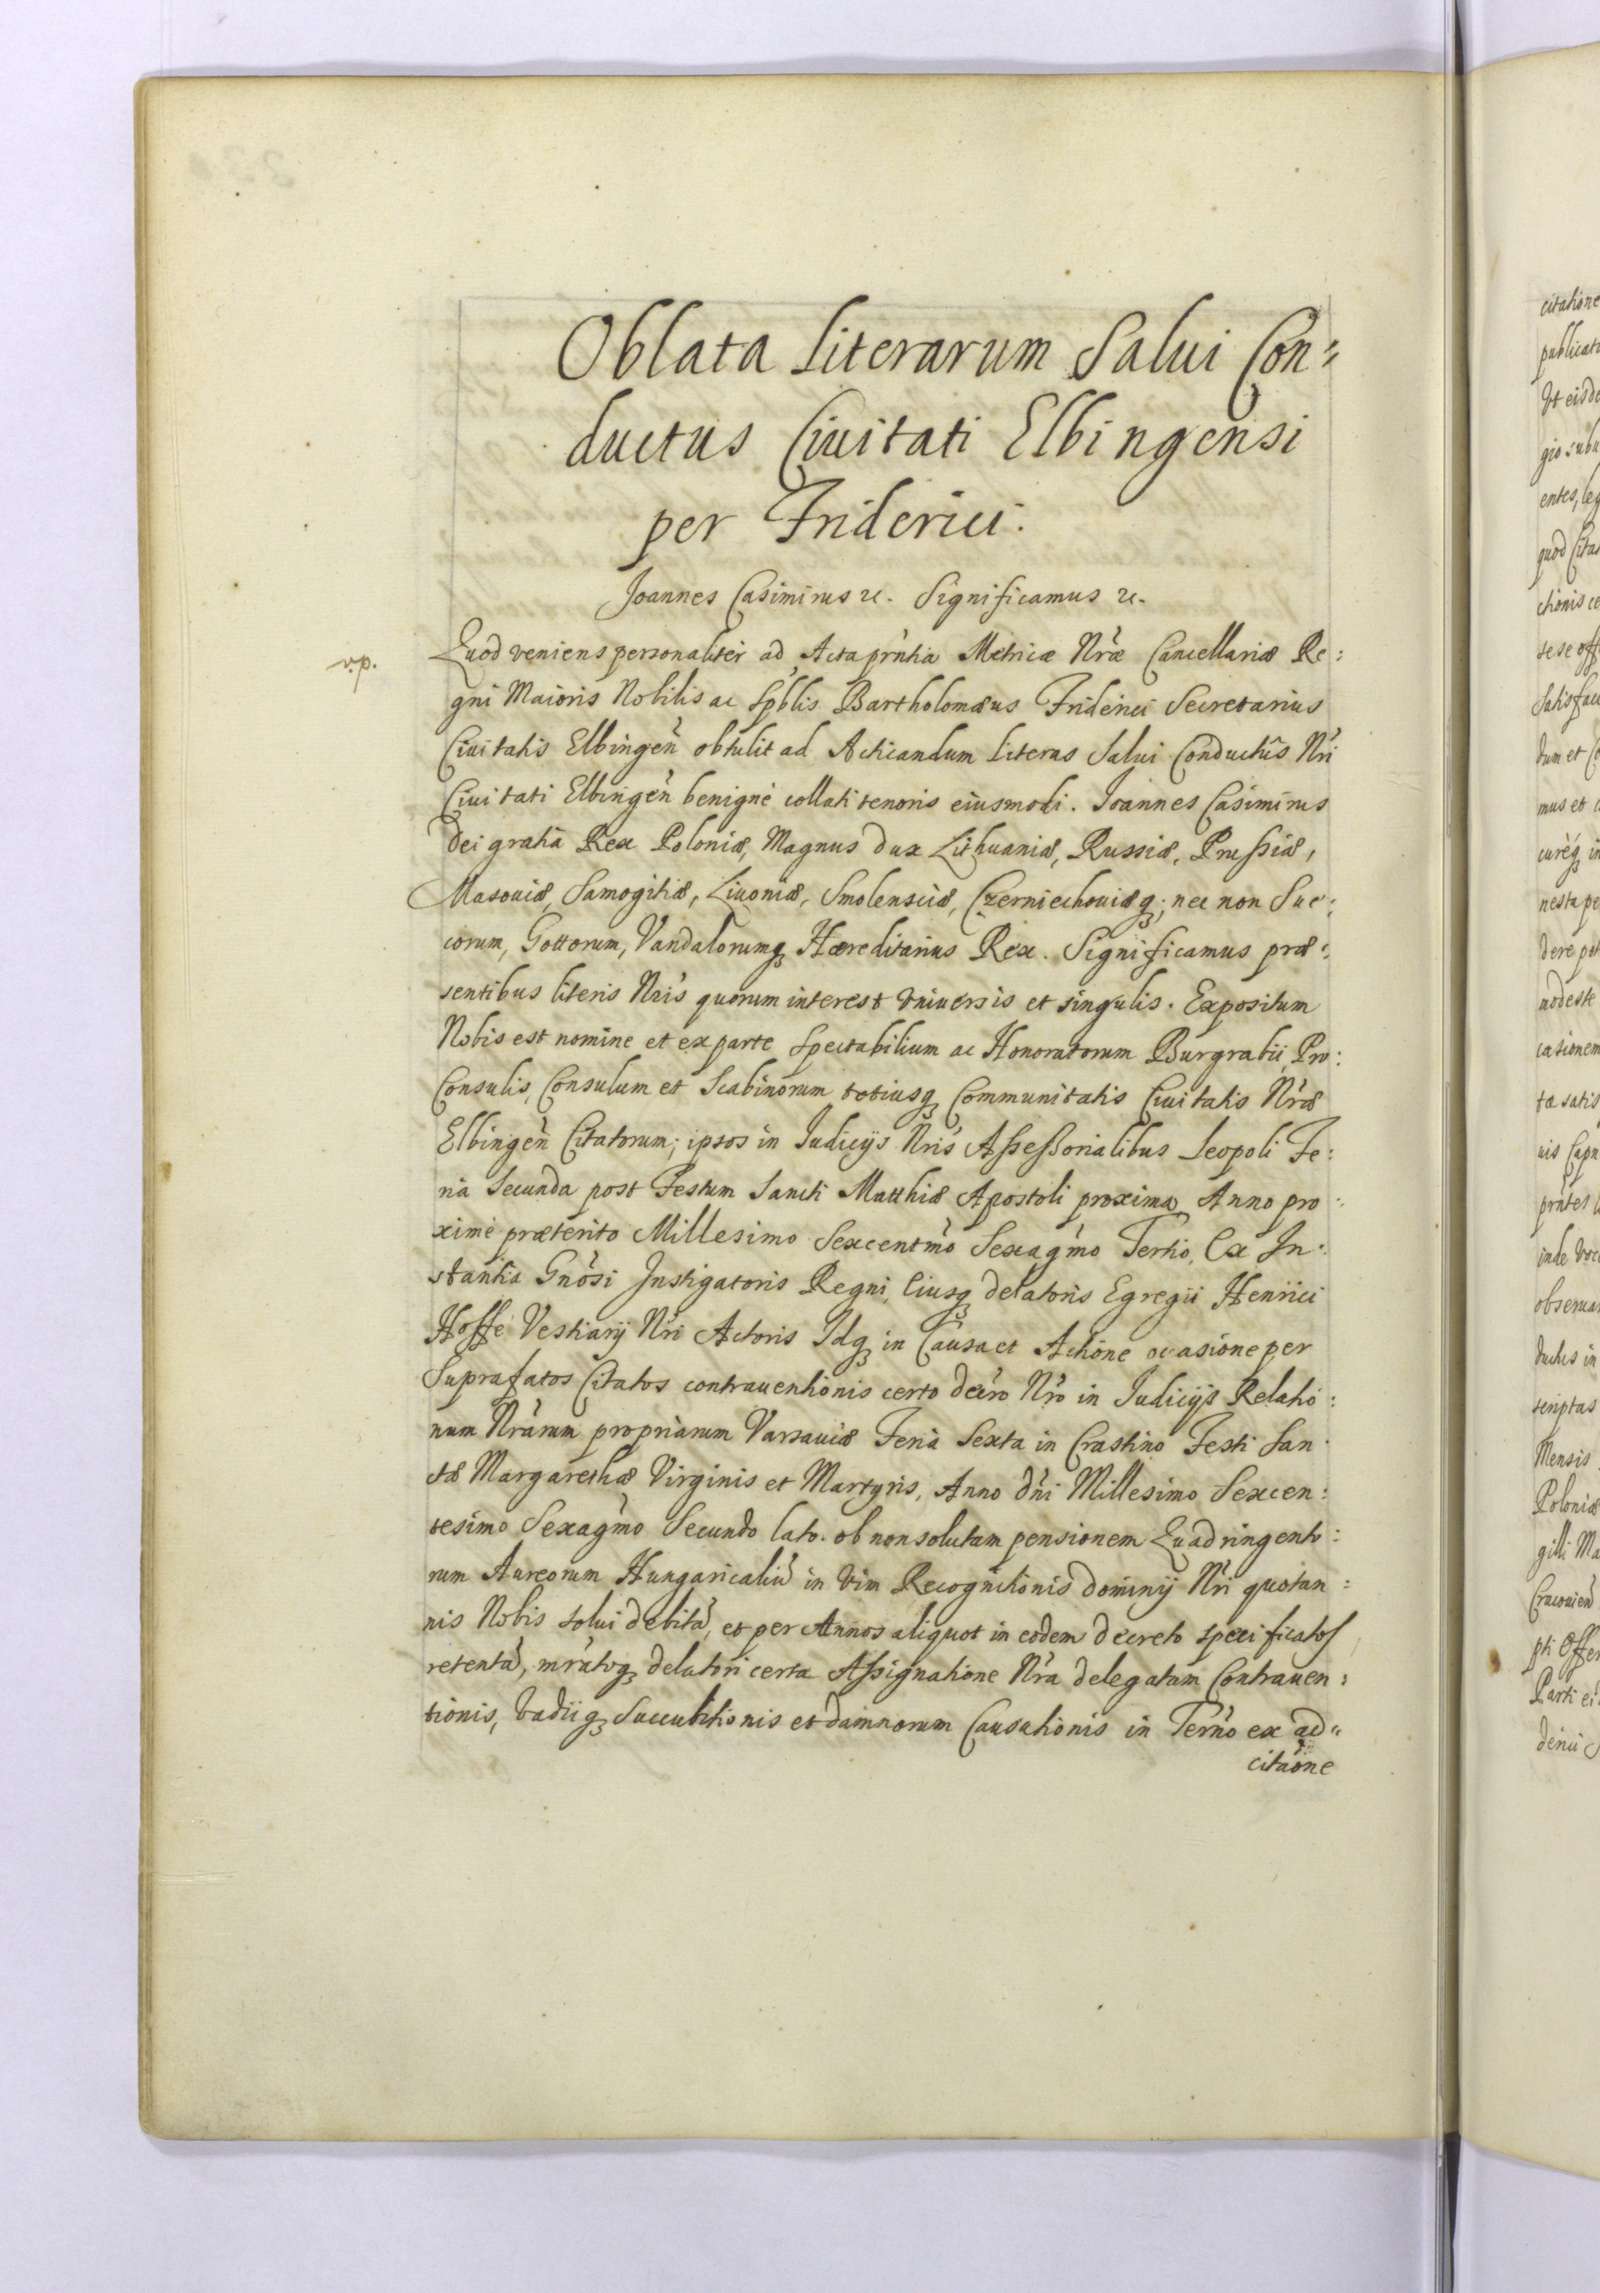 Oblata Literarum Salui Con=
ductus Ciuitati Elbingensi
per Friderici.
Joannes Casimirus &c. Significamus &c.
v.p.
Quod veniens personaliter ad Acta prñtia Metricæ Nræ Cancellariæ Re:
gni Maioris Nobilis ac Spblis Bartholomæus Friderici Secretarius
Ciuitatis Elbingeñ obtulit ad Acticandum Literas Salui Conductûs Nri
Ciuitati Elbingeñ benignè collati tenoris eiusmodi. Joannes Casimirus
Dei gratia Rex Poloniæ, Magnus dux Lithuaniæ, Russiæ, Prussiæ,
Masouiæ, Samogitiæ, Liuoniæ, Smolensciæ, Czerniechouiæq; nec non Sue:
corum, Gottorum, Vandalorumq Hæreditarius Rex. Significamus præ:
sentibus literis Nris quorum interest vniuersis et singulis. Expositum
Nobis est nomine et ex parte Spectabilium ac Honoratorum Burgrabii, Pro:
Consulis, Consulum et Scabinorum totiusq Communitatis Ciuitatis Nræ
Elbingeñ Citatorum; ipsos in Judicijs Nris Assessorialibus Leopoli Fe:
ria Secunda post Festum Sancti Matthiæ Apostoli proxima Anno pro:
ximè præterito Millesimo Sexcentmo Sexagmo Tertio, Ex In:
stantia Gnosi Instigatoris Regni, Eiusq delatoris Egregii Henrici
Hoffe Vestiarij Nri Actoris Idq in Causa et Actione occasione per
Suprafatos Citatos contrauentionis certo decro Nro in Judicijs Relatio:
num Nrarum propriarum Varsauiæ Feria Sexta in Crastino Festi San:
ctæ Margarethæ Virginis et Martyris, Anno dni Millesimo Sexcen:
tesimo Sexagmo Secundo lato. ob non solutam pensionem Quadringento:
rum Aureorum Hungaricaliũ in vim Recognitionis dominij Nri quotan:
nis Nobis solui debitã, et per Annos aliquot in eodem decreto specificatos
retentã, mratoq delatori certa Assignatione Nra delegatam Contrauen:
tionis, Vadiiq Succubitionis et damnorum Causationis in Terño ex ad=
citaõne